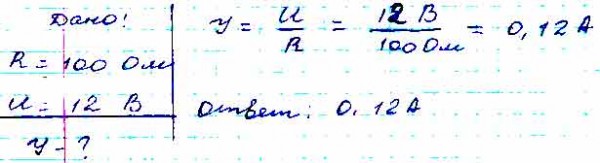 Дано:
R = 100 Ом
U = 12 В
У - ?
У = U / R = 12 В / 100 Ом = 0,12 А
Ответ: 0,12 А